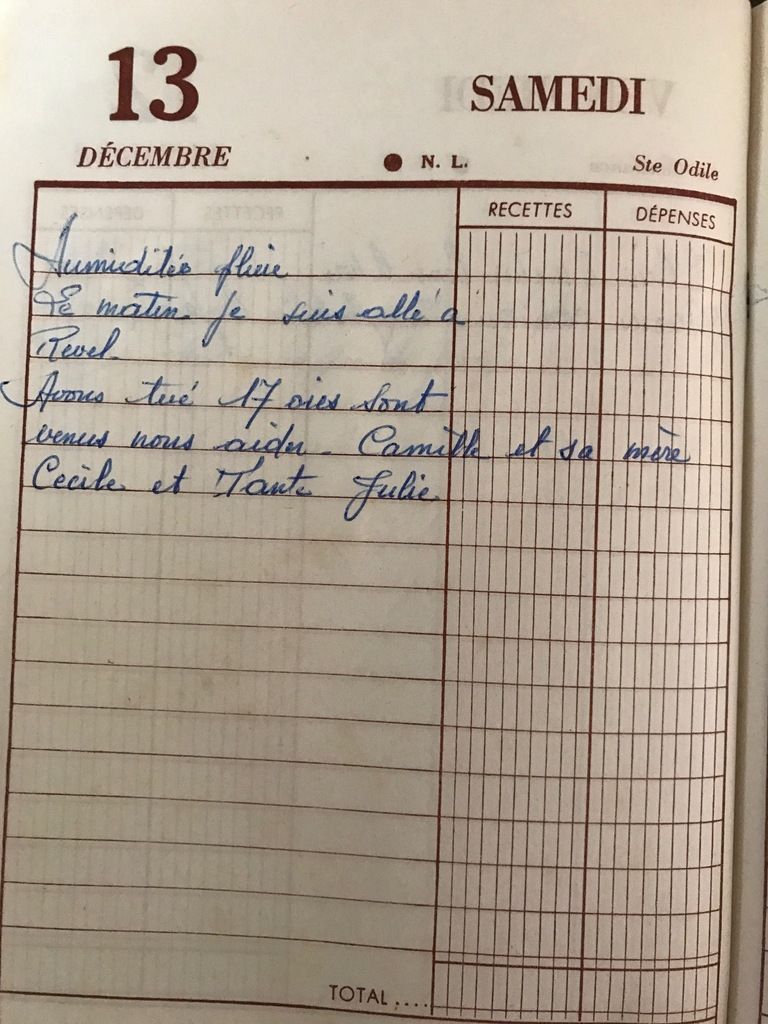 13
SAMEDI
DÉCEMBRE
● N. L.
Ste Odile
RECETTES
DÉPENSES
Humidités pluie
Le matin je suis allé a
Revel
Avons tué 17 oies Sont
venus nous aider. Camille et sa mère
Cecile et Tante Julie
TOTAL ....